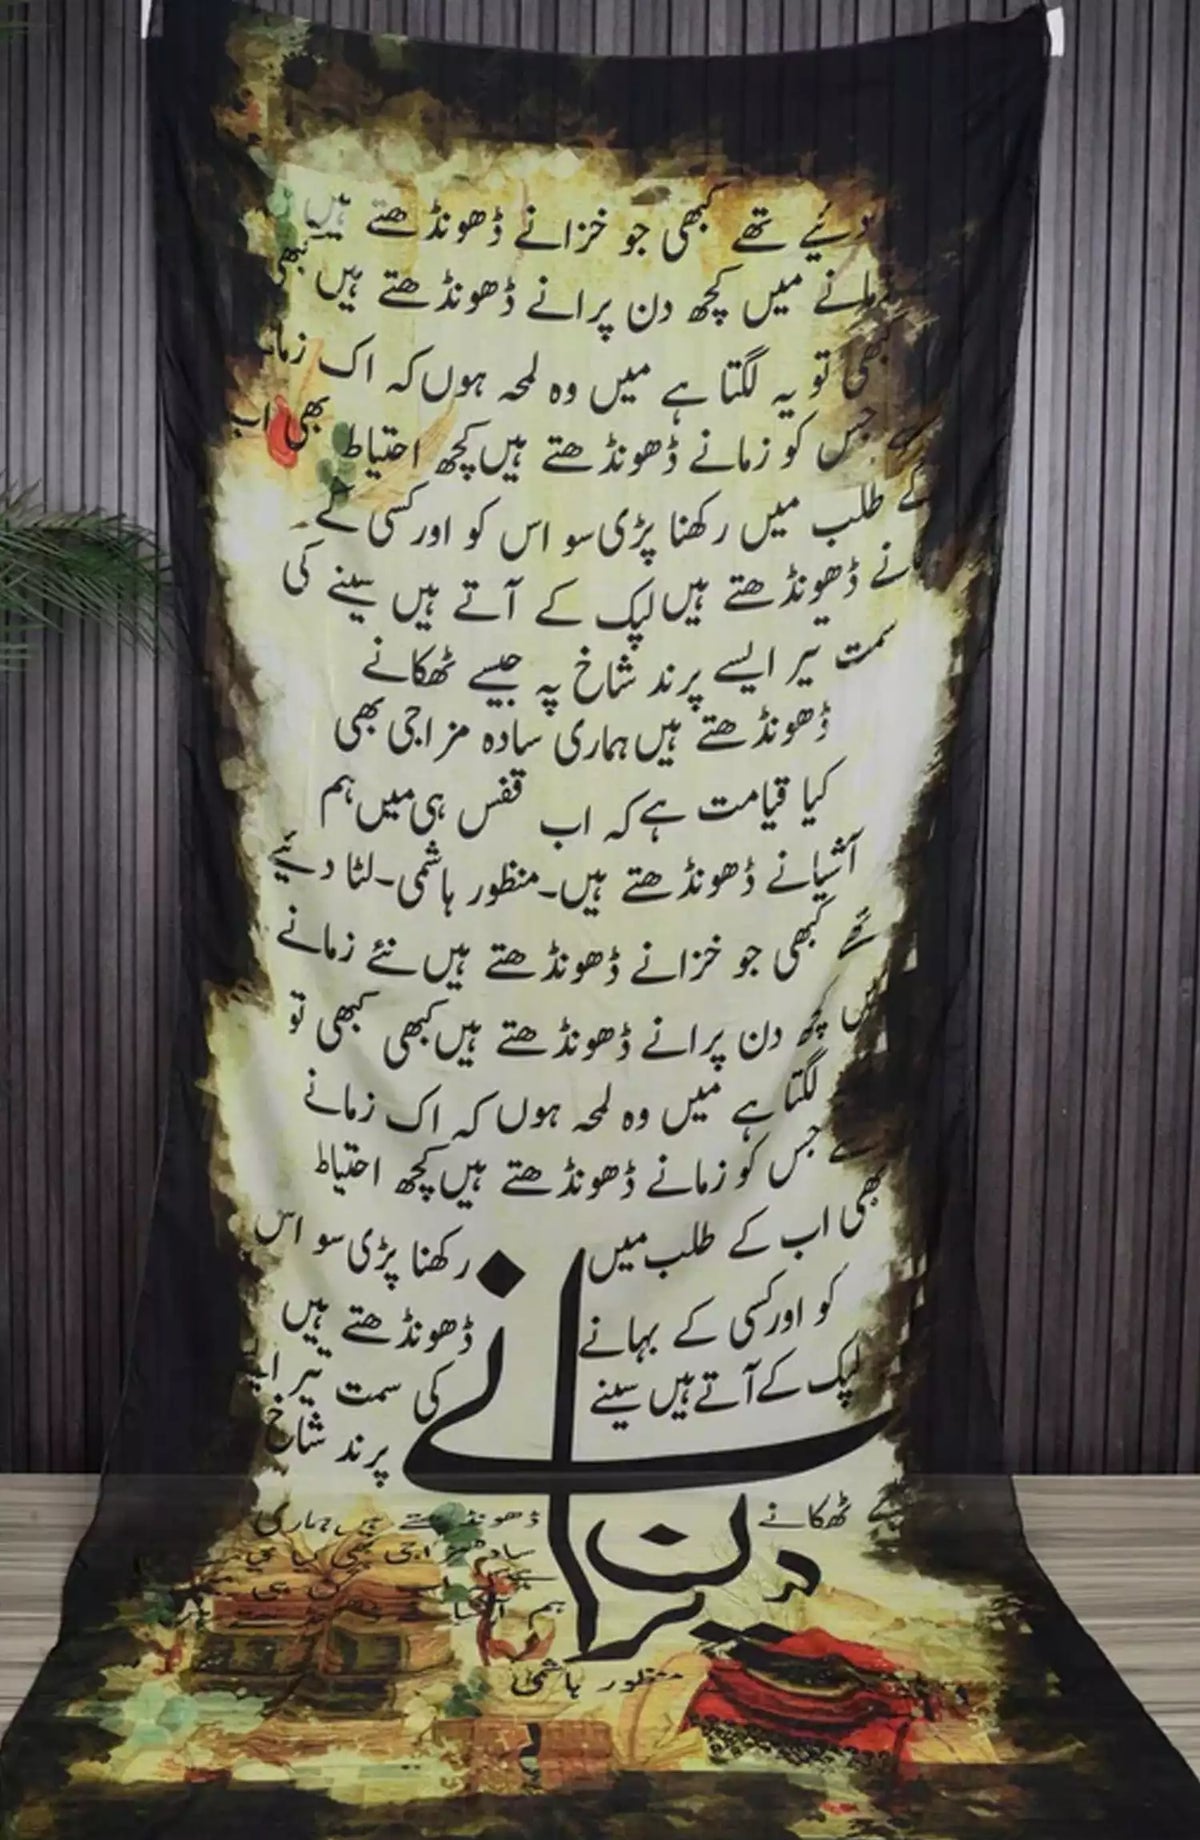 دئیے تھے کبھی جو خزانے ڈھونڈھتے ہیں
زمانے میں کچھ دن پرانے ڈھونڈھتے ہیں کبھی
کبھی تو یہ لگتا ہے میں وہ لمحہ ہوں کہ اک زمانے
سے جس کو زمانے ڈھونڈھتے ہیں کچھ احتیاط بھی اب
کے طلب میں رکھنا پڑی سو اس کو اور کسی کے
ڈھونڈھتے ہیں لپک کے آتے ہیں سینے کی
سمت تیر ایسے پرند شاخ پہ جیسے ٹھکانے
ڈھونڈھتے ہیں ہماری سادہ مزاجی بھی
کیا قیامت ہے کہ اب قفس ہی میں ہم
آشیانے ڈھونڈھتے ہیں۔ منظور ہاشمی۔ لٹا دئیے
تھے کبھی جو خزانے ڈھونڈھتے ہیں نئے زمانے
میں کچھ دن پرانے ڈھونڈھتے ہیں کبھی کبھی تو
لگتا ہے میں وہ لمحہ ہوں کہ اک زمانے
سے جس کو زمانے ڈھونڈھتے ہیں کچھ احتیاط
بھی اب کے طلب میں رکھنا پڑی سو اس
کو اور کسی کے بہانے ڈھونڈھتے ہیں
لپک کے آتے ہیں سینے کی سمت تیر
پرند شاخ
ٹھکانے ڈھونڈھتے ہیں ہماری
دن پرانے
منظور ہاشمی